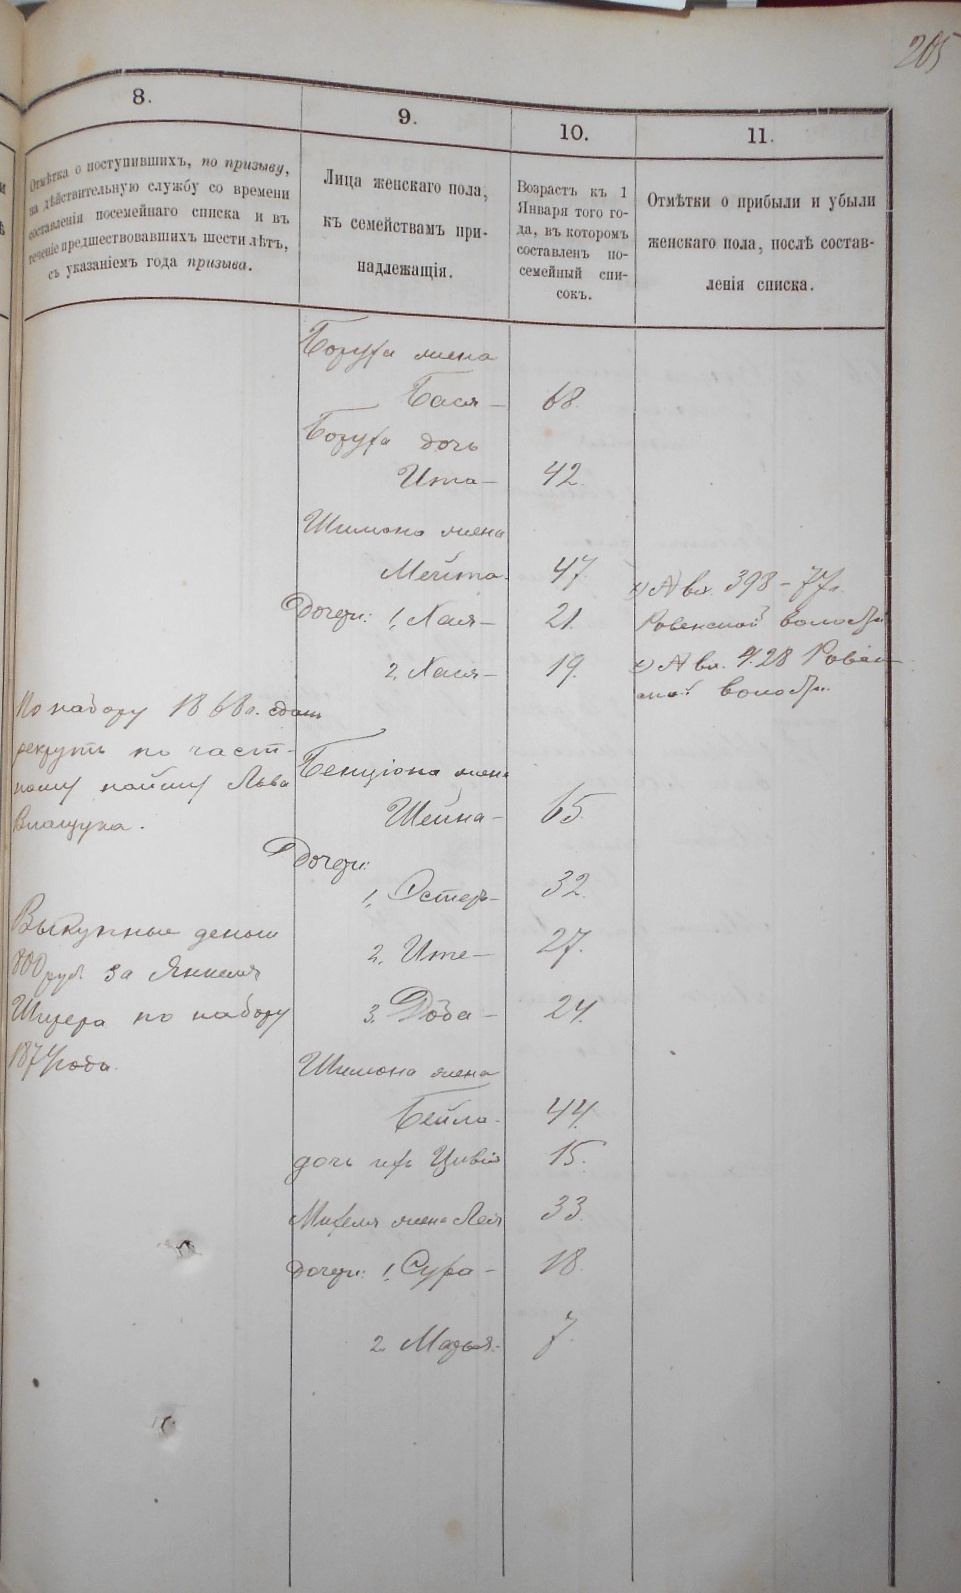 205
8.
9.
10.
11.
Отмѣтка о поступившихъ, по призыву,
на дѣйствительную службу со времени
составленія посемейнаго списка и въ
теченіе предшествовавшихъ шести лѣтъ,
съ указаніемъ года призыва.
Лица женскаго пола,
къ семействамъ при-
надлежащія.
Возрастъ къ 1
Января того го-
да, въ которомъ
составленъ по-
семейный спи-
сокъ.
Отмѣтки о прибыли и убыли
женскаго пола, послѣ состав-
ленія списка.
Боруха жена
Бася – 68.
Боруха дочь
Ита – 42.
Шимона жена
Мейта. 47.
1) А вл. 398 – 77.
Дочери: 1, Хая – 21.
Ровенской волости
2, Хася – 19.
2) А вл. 428 Ровен
ской волости.
По набору 1868 г. сданъ
рекрутъ по част-
ному найму Льва
Бенціона жена
Шейна – 65.
Дочери:
1, Эстеръ – 32.
Выкупные деньги
800 руб. за Янкеля
2, Ите – 27.
по набору
3, Доба – 24.
1874 года.
Шимона жена
Бейла. 44.
дочь ихъ Цивія 15.
Михеля жена Лея 33.
Дочери: 1, Сура – 18.
2. Марья. 7.